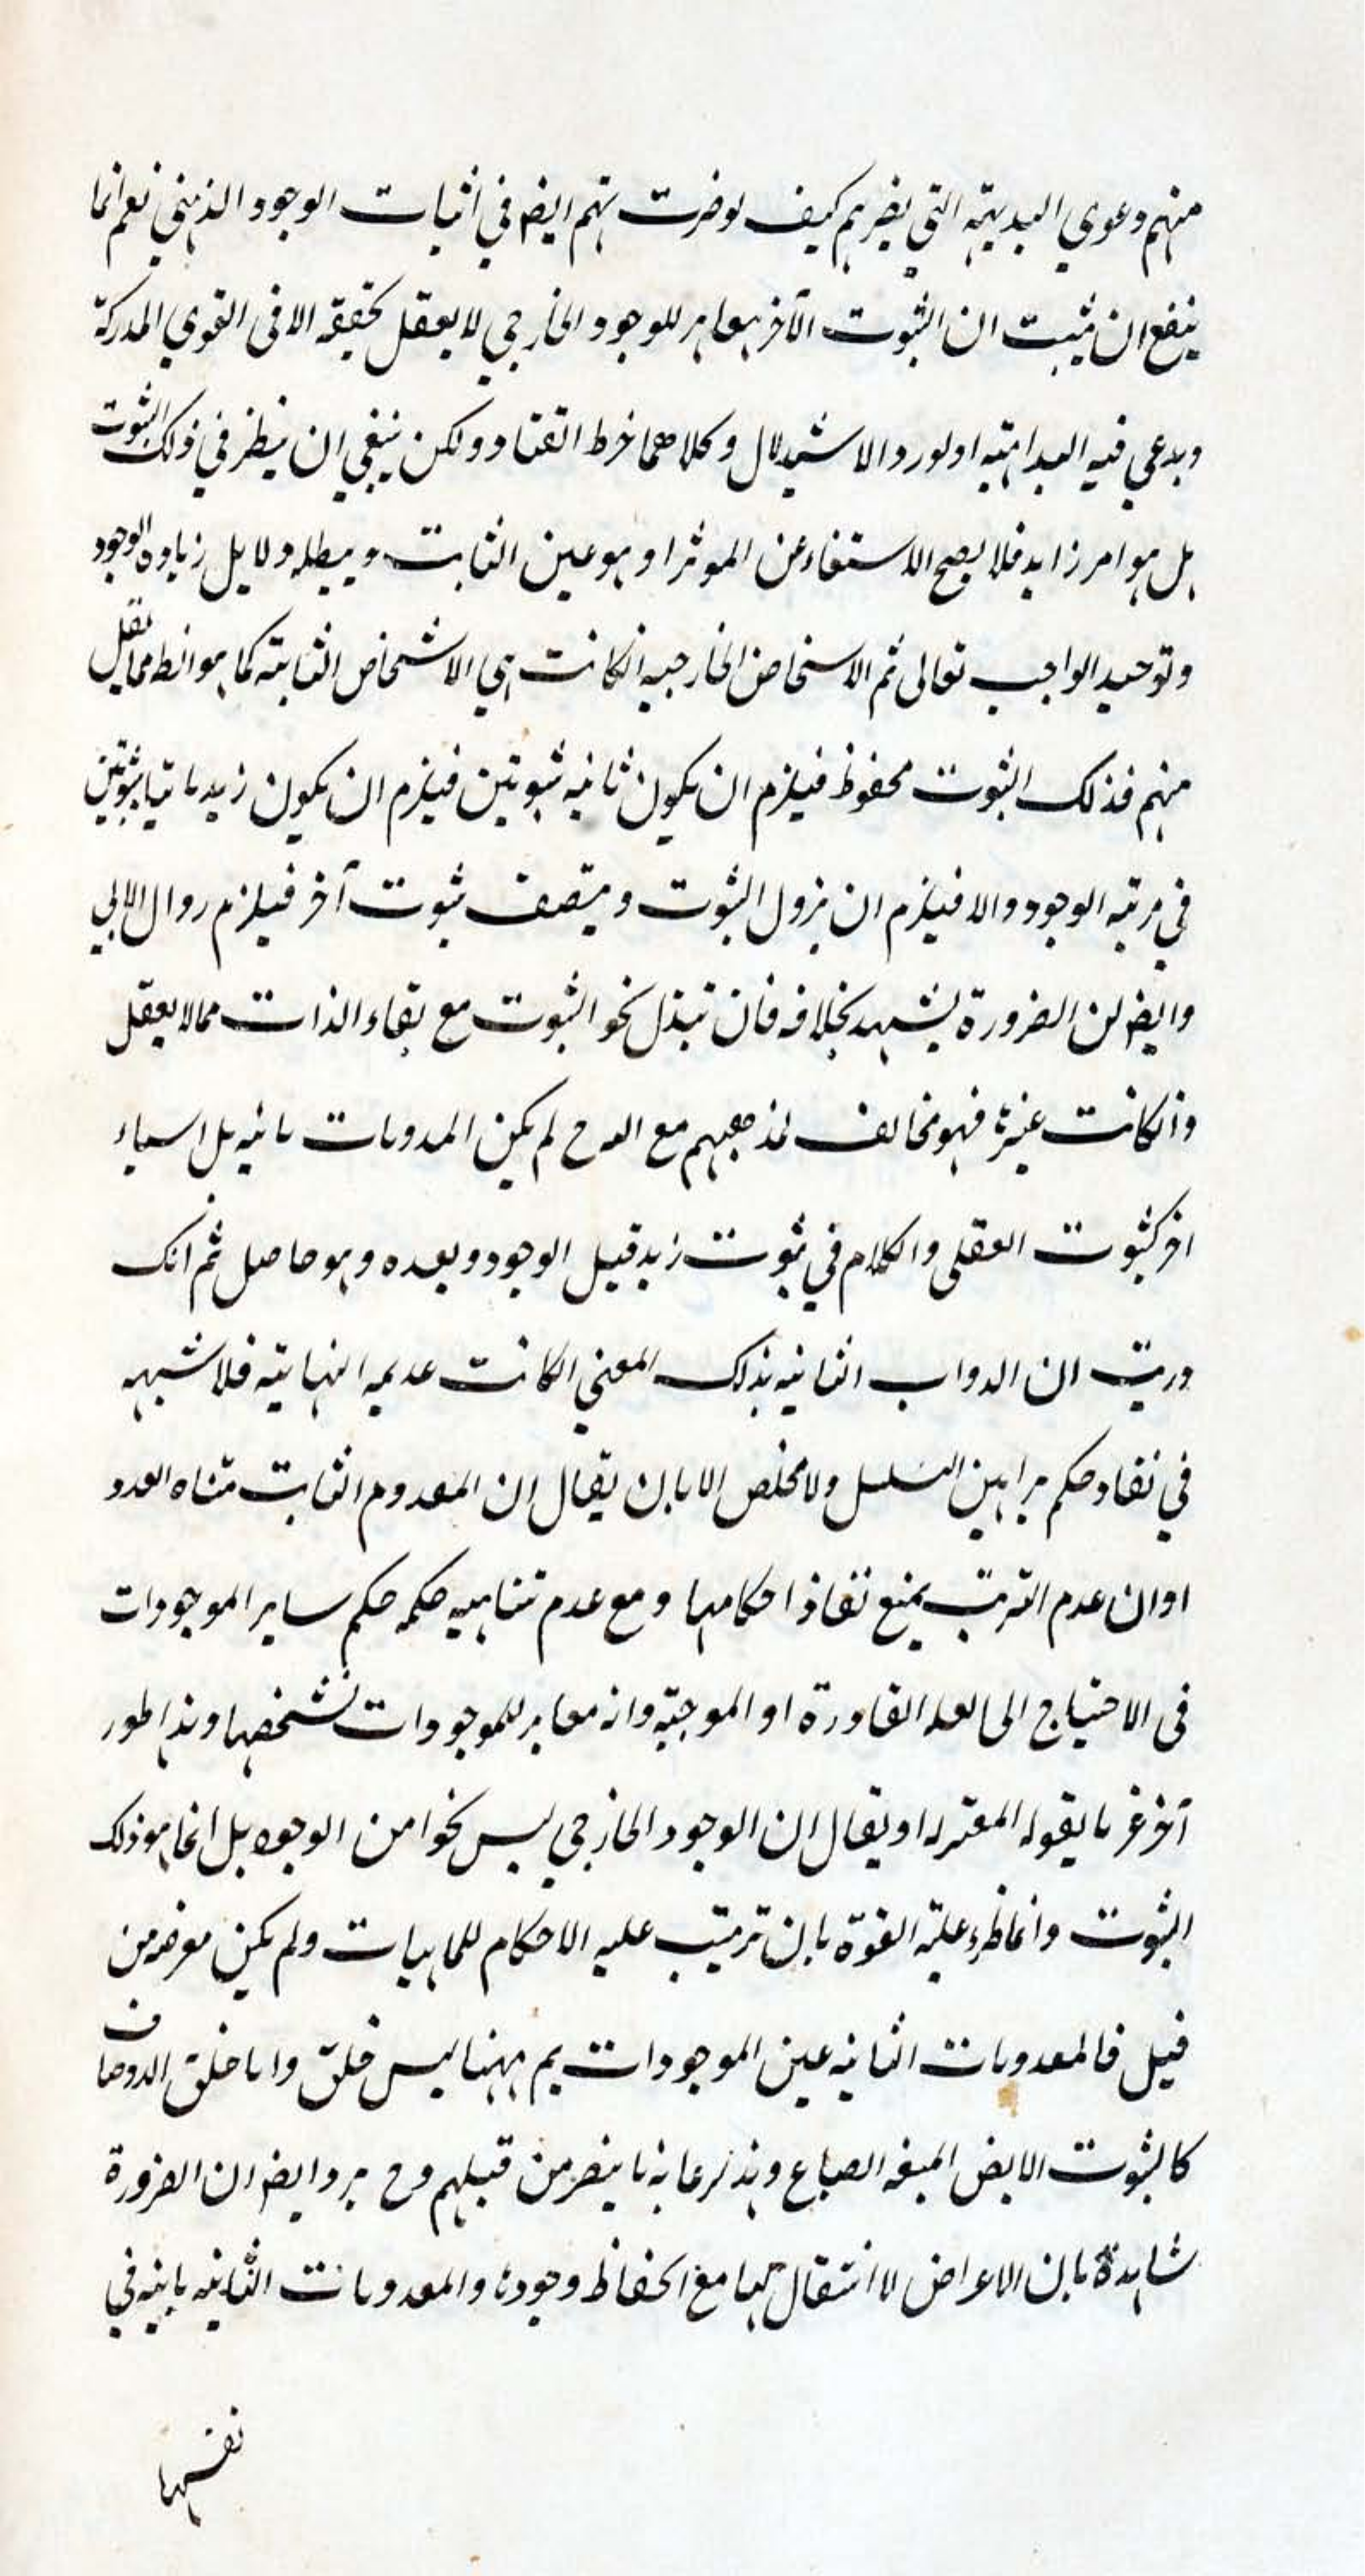 منهم دعوي البديهة التي يضرهم كيف لو ضرت تهم ايضا في اثبات الوجود الذهني نعم انما
ينفع ان يثبت ان الثبوت الآخر مغاير للوجود الخارجي لا يعقل تحققه الا في القوي المدركة
ويدعي فيه البداهته او لورد الاستدلال وكلاهما خرط القتاد ولكن ينبغي ان ينظر في ذلك الثبوت
بل هو امر زايد فلا يصح الاستغناء عن الموثر او هو عين الثابت ويبطله دلايل زيادة الوجود
وتوحيد الواجب تعالى ثم الاشخاص الخارجيه انكانت هي الاشخاص الثابته كما هو نقل
منهم فذلك الثبوت محفوظ فيلزم ان يكون ثانيه ثبوتين فيلزم ان يكون زيد ثابتا بثبوتين
في مرتبه الوجود والا فيلزم ان يزول الثبوت ويتصف ثبوت آخر فيلزم زوال
وايضا لن الضرورة يشهد بخلافه فان تبدل نحو الثبوت مع بقاء الذات مما لا يعقل
وانكانت غيرها فهو مخالف لمذهبهم مع لم يكن المعدومات ثابته بل اشياء
اخر كثبوت العقلي والكلام في ثبوت زيد قبل الوجود وبعده وهو حاصل ثم انك
دريت ان الدواب الثانيه بذلك المعني الكانت عديمه النهايته فلا شبهه
في نفاد حكم براهين التسلسل ولا مخلص الا بان يقال ان المعدوم الثابت متناه العدد
او ان عدم الترتب يمنع نفاذ احكامها ومع عدم تناهيه حكمه حكم ساير الموجودات
في الاحتياج الى العله القادرة او الموجبة وانه مغاير للموجودات تشخصها وهذا طور
آخر غير ما يقوله المعتزله او يقال ان الوجود الخارجي ليس نحوا من الوجود بل انما هو ذلك
الثبوت وانما طرء عليه القوة بان ترتب عليه الاحكام للماهيات ولم يكن معرضه من
قبل فالمعدومات الثانيه عين الموجودات ثم ههنا ليس خلق واما خلق الاوصاف
كالثبوت الابيض الصباغ من قبلهم وح يرد ايضا ان الضرورة
شاهدة بان الاعراض لا انتقال لها مع انحفاظ وجودها والمعدومات الثانيه باينه في
نفسها